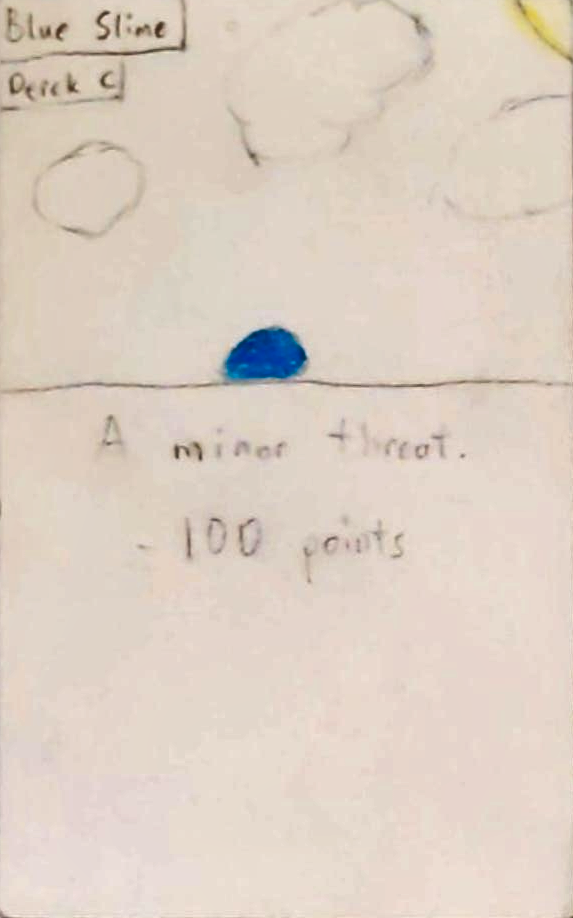 Blue Slime
Derek C
A minor threat.
- 100 points